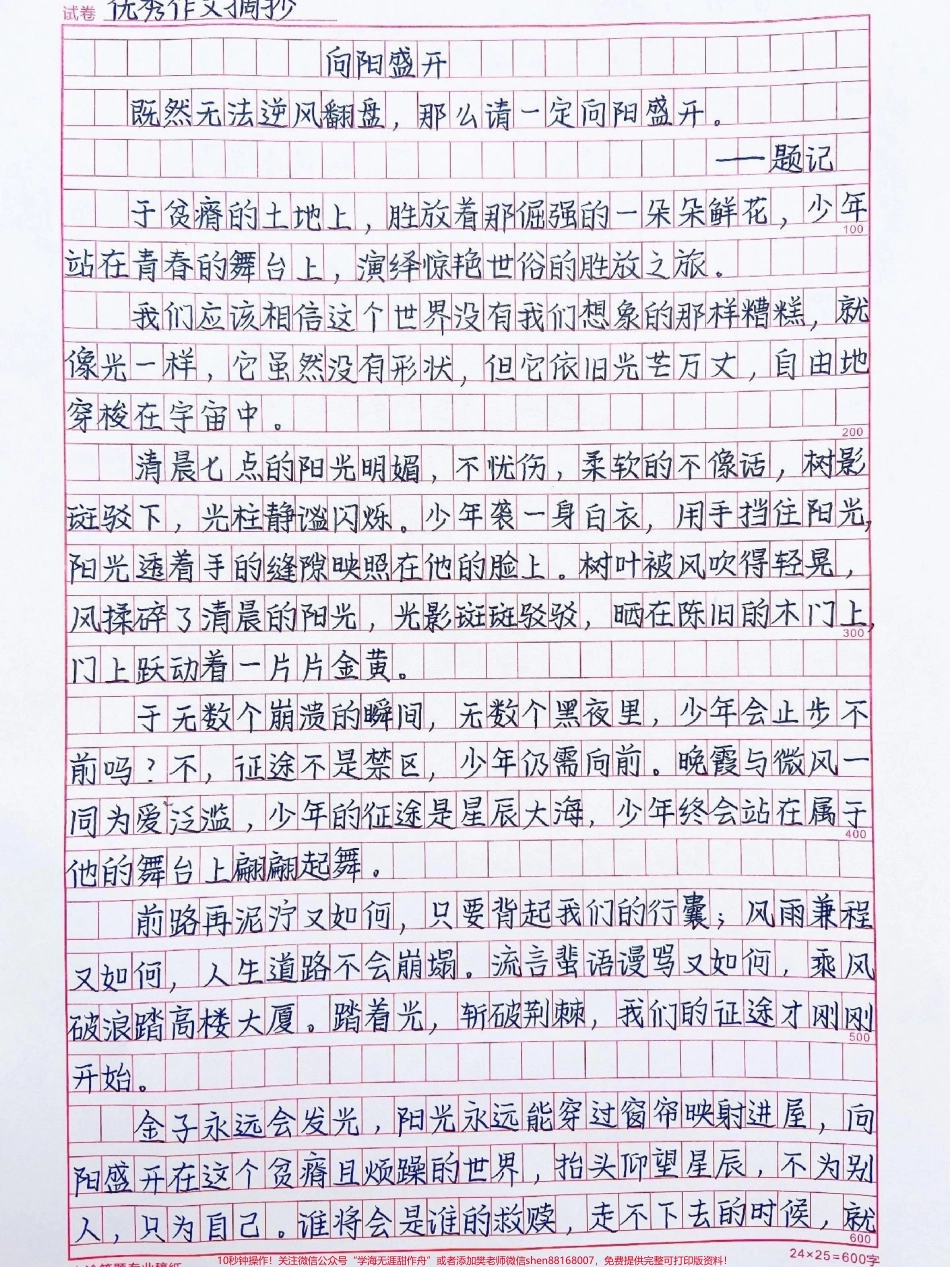 试卷 优秀作文摘抄
向阳盛开
既然无法逆风翻盘，那么请一定向阳盛开。
——题记
于贫瘠的土地上，胜放着那倔强的一朵朵鲜花，少年
100
站在青春的舞台上，演绎惊艳世俗的胜放之旅。
我们应该相信这个世界没有我们想象的那样糟糕，就
像光一样，它虽然没有形状，但它依旧光芒万丈，自由地
穿梭在宇宙中。
200
清晨七点的阳光明媚，不忧伤，柔软的不像话，树影
斑驳下，光柱静谧闪烁。少年袭一身白衣，用手挡住阳光，
阳光透着手的缝隙映照在他的脸上。树叶被风吹得轻晃，
风揉碎了清晨的阳光，光影斑斑驳驳，晒在陈旧的木门上，
300
门上跃动着一片片金黄。
于无数个崩溃的瞬间，无数个黑夜里，少年会止步不
前吗？不，征途不是禁区，少年仍需向前。晚霞与微风一
同为爱泛滥，少年的征途是星辰大海，少年终会站在属于
400
他的舞台上翩翩起舞。
前路再泥泞又如何，只要背起我们的行囊；风雨兼程
又如何，人生道路不会崩塌。流言蜚语谩骂又如何，乘风
破浪踏高楼大厦。踏着光，斩破荆棘，我们的征途才刚刚
500
开始。
金子永远会发光，阳光永远能穿过窗帘映射进屋，向
阳盛开在这个贫瘠且烦躁的世界，抬头仰望星辰，不为别
人，只为自己。谁将会是谁的救赎，走不下去的时候，就
600
24×25=600字
10秒钟操作！关注微信公众号“学海无涯甜作舟”或者添加樊老师微信shen88168007，免费提供完整可打印版资料！